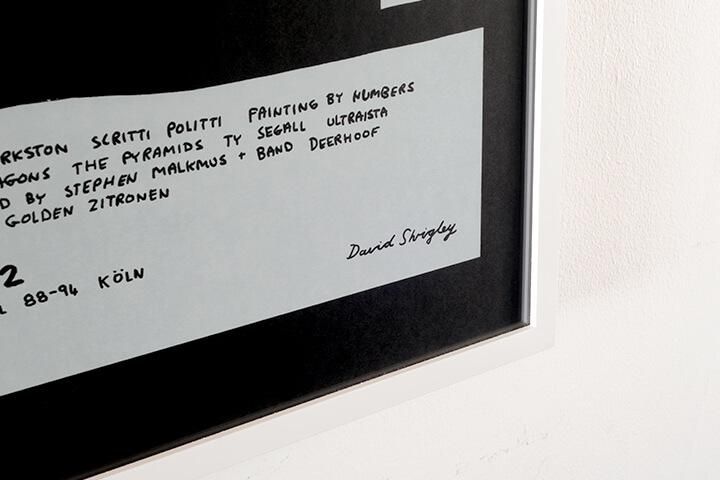 RKSTON SCRITTI POLITTI PAINTING BY NUMBERS
AGONS THE PYRAMIDS TY SEGALL ULTRAISTA
D BY STEPHEN MALKMUS + BAND DEERHOOF
GOLDEN ZITRONEN
2
L 88-94 KÖLN
David Shrigley